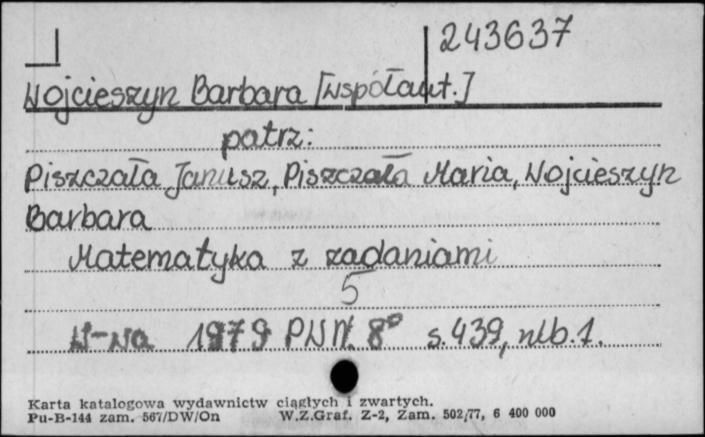 243637
Wojcieszyn Barbara [współaut.]
patrz:
Piszczała Janusz, Piszczała Maria, Wojcieszyn
Barbara
Matematyka z zadaniami
5
W-wa 1979 PWN. 8° s. 439, nlb. 1.
Karta katalogowa wydawnictw ciągłych i zwartych.
Pu-B-144 zam. 567/DW/On W.Z.Graf. Z-2, Zam. 502/77, 6 400 000